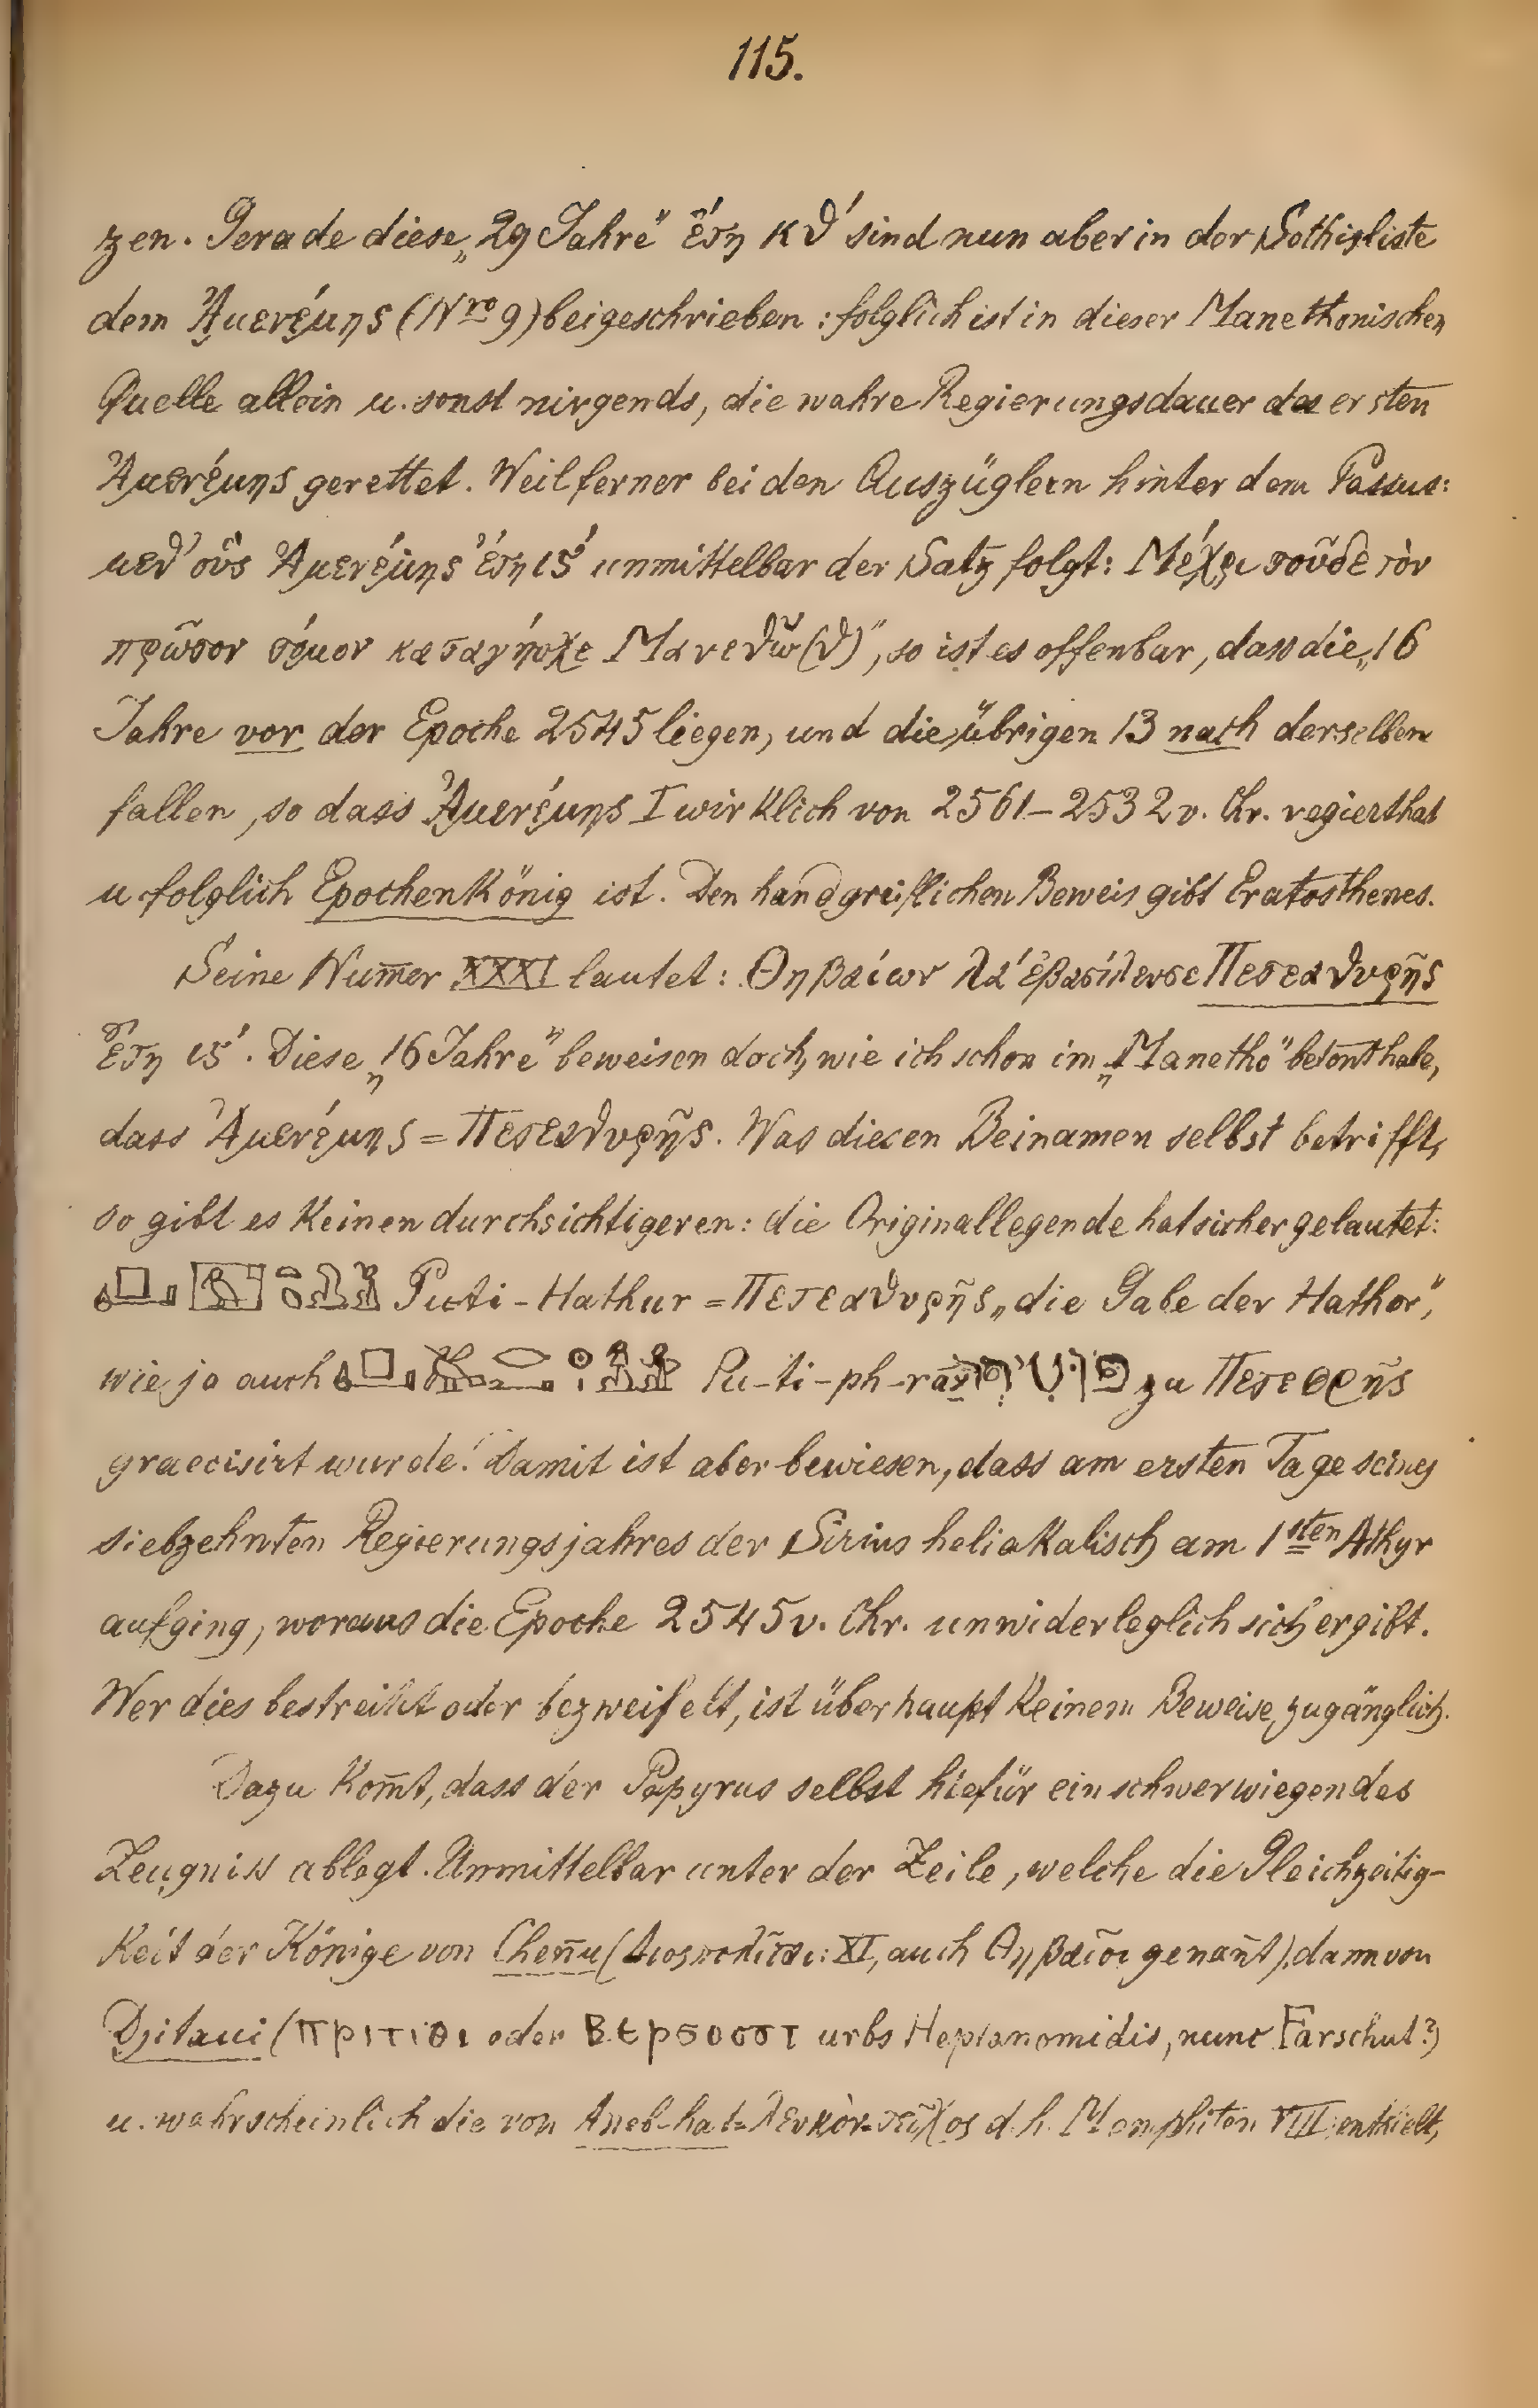 115.
zen. Gerade diese „29 Jahre“ ἔτη κθ′ sind nun aber in der Sothisliste
dem Ἀμενέμης (Nro 9) beigeschrieben: folglich ist in dieser Manethonischen
Quelle allein u. sonst nirgends, die wahre Regierungsdauer des ersten
Ἀμενέμης gerettet. Weil ferner bei den Auszüglern hinter dem Passus:
μεθ’ οὓς Ἀμενέμης ἔτη ις′ unmittelbar der Satz folgt: Μέχρι τοῦδε τὸν
πρῶτον τόμον καταγήοχε Μανεθῶ(θ)“, so ist es offenbar, dass die „16
Jahre vor der Epoche 2545 liegen, und die übrigen 13 nach derselben
fallen, so dass Ἀμενέμης I wirklich von 2561–2532 v. Chr. regiert hat
u. folglich Epochenkönig ist. Den handgreiflichen Beweis gibt Eratosthenes.
Seine Num̅er XXXI lautet: Θηβαίων λα′ ἐβασίλευσε Πετεαθυρῆς
ἔτη ις′. Diese „16 Jahre“ beweisen doch, wie ich schon im „Manetho“ betont habe,
dass Ἀμενέμης = Πετεαθυρῆς. Was diesen Beinamen selbst betrifft,
so gibt es keinen durchsichtigeren: die Originallegende hat sicher gelautet:
Puti-Hathur = Πετεαθυρῆς „die Gabe der Hathor“,
wie ja auch Pu-ti-ph-rā zu Πετεφρῆς
graecisirt wurde. Damit ist aber bewiesen, dass am ersten Tage seines
siebzehnten Regierungsjahres der Sirius heliakalisch am 1sten Athyr
aufging, woraus die Epoche 2545 v. Chr. unwiderleglich sich ergibt.
Wer dies bestreitet oder bezweifelt, ist überhaupt keinem Beweise zugänglich.
Dazu kom̅t, dass der Papyrus selbst hiefür ein schwerwiegendes
Zeugniss ablegt. Unmittelbar unter der Zeile, welche die Gleichzeitig-
keit der Könige von Chen̅u (Διοσπολῖται: XI, auch Θηβαῖοι genan̅t), dann von
Djitaui (ⲡⲣⲓⲧⲓⲑⲓ oder urbs Heptanomidis, nunc Farschut?)
u. wahrscheinlich die von Aneb-hat = Λευκὸν-τεῖχος d. h. Memphiten VIII enthielt,